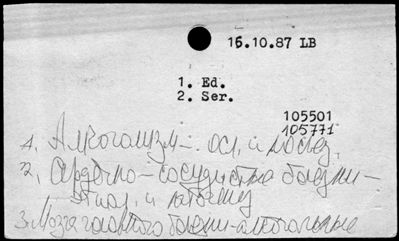 16.10.87 LB
1. Ed.
2. Ser.
105501
105771
1. Алкоголизм - осл. и послед.
2. Сердечно-сосудистые болезни -
этиол. и патогенез
3. Мозга головного болезни - алкогольные